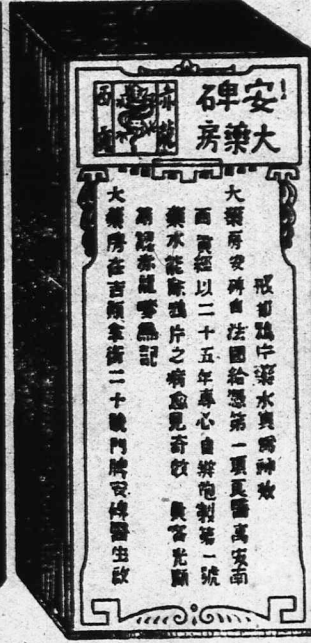 安碑
大藥房
赤龍
西貢
戒却鴉片藥水真為神效
大藥房安碑自法國給憑第一項良醫寓安南
西貢經以二十五年專心自辦炮製第一號
藥水能除鴉片之病愈見奇效 貴客光顧
認赤龍嘜為記
大藥房在吉拿街二十號門牌安碑醫生啟